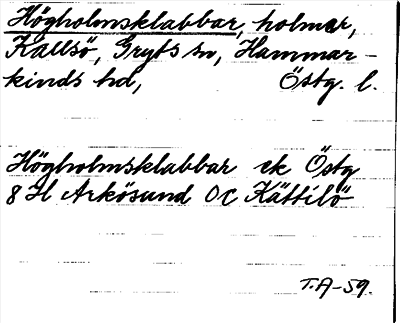 Högholmsklabbar, holmar,
Källsö, Gryts sn, Hammar-
kinds hd, Östg. l.
Högholmsklabbar ek Östg
8 Il Arkösund OC Kättilö
T.A-59.